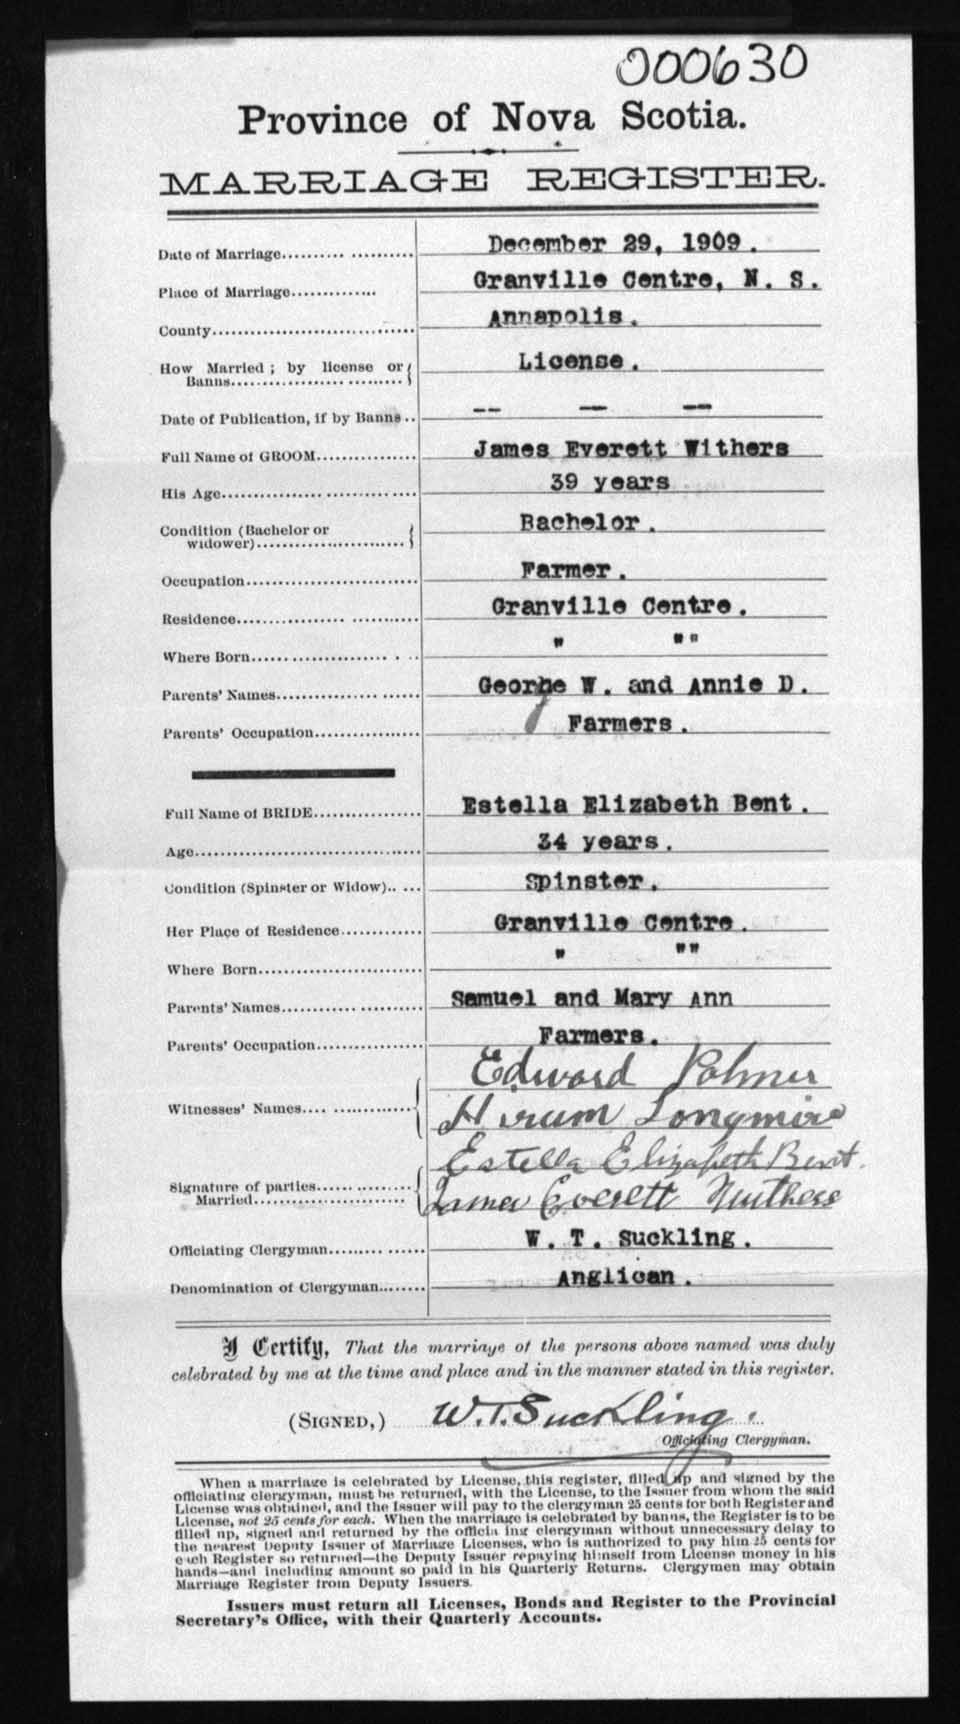 000630
Province of Nova Scotia.
MARRIAGE REGISTER.
Date of Marriage.......... .......... December 29, 1909.
Place of Marriage............. Granville Centre, N. S.
County................................ Annapolis.
How Married ; by license or
Banns.................... .......... License.
Date of Publication, if by Banns .. -- -- --
Full Name of GROOM................ James Everett Withers
His Age................................ 39 years
Condition (Bachelor or
widower)........................ Bachelor.
Occupation............................ Farmer.
Residence................. ........... Granville Centre.
Where Born...................... . .. " ""
Parents' Names................. ...... George W. and Annie D.
Parents' Occupation................. Farmers.
Full Name of BRIDE................. Estella Elizabeth Bent.
Age..................................... 34 years.
Condition (Spinster or Widow).. ... Spinster.
Her Place of Residence............. Granville Centre.
Where Born........................... " ""
Parents' Names............ ........... Samuel and Mary Ann
Parents' Occupation................. Farmers.
Edward
Witnesses' Names.... .............
Hirum Longmire
Estella Elizabeth Bent.
Signature of parties...............
Married.........................
James Everett
Officiating Clergyman......... ...... W. T. Suckling.
Denomination of Clergyman........ Anglican.
I Certify, That the marriage of the persons above named was duly
celebrated by me at the time and place and in the manner stated in this register.
(SIGNED,) W. T. Suckling.
Officiating Clergyman.
When a marriage is celebrated by License, this register, filled up and signed by the
officiating clergyman, must be returned, with the License, to the Issuer from whom the said
License was obtained, and the Issuer will pay to the clergyman 25 cents for both Register and
License, not 25 cents for each. When the marriage is celebrated by banns, the Register is to be
filled up, signed and returned by the officia ing clergyman without unnecessary delay to
the nearest Deputy Issuer of Marriage Licenses, who is authorized to pay him 25 cents for
each Register so returned—the Deputy Issuer repaying himself from License money in his
hands—and including amount so paid in his Quarterly Returns. Clergymen may obtain
Marriage Register from Deputy Issuers.
Issuers must return all Licenses, Bonds and Register to the Provincial
Secretary's Office, with their Quarterly Accounts.